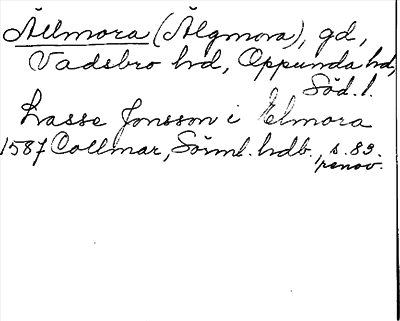 Ällmora (Älgmora), gd,
Vadsbro hd, Oppunda hd,
Söd. l.
Lasse Jonsson i Elmora
1587 Collmar, Sörml. hdb., s. 89.
renov.